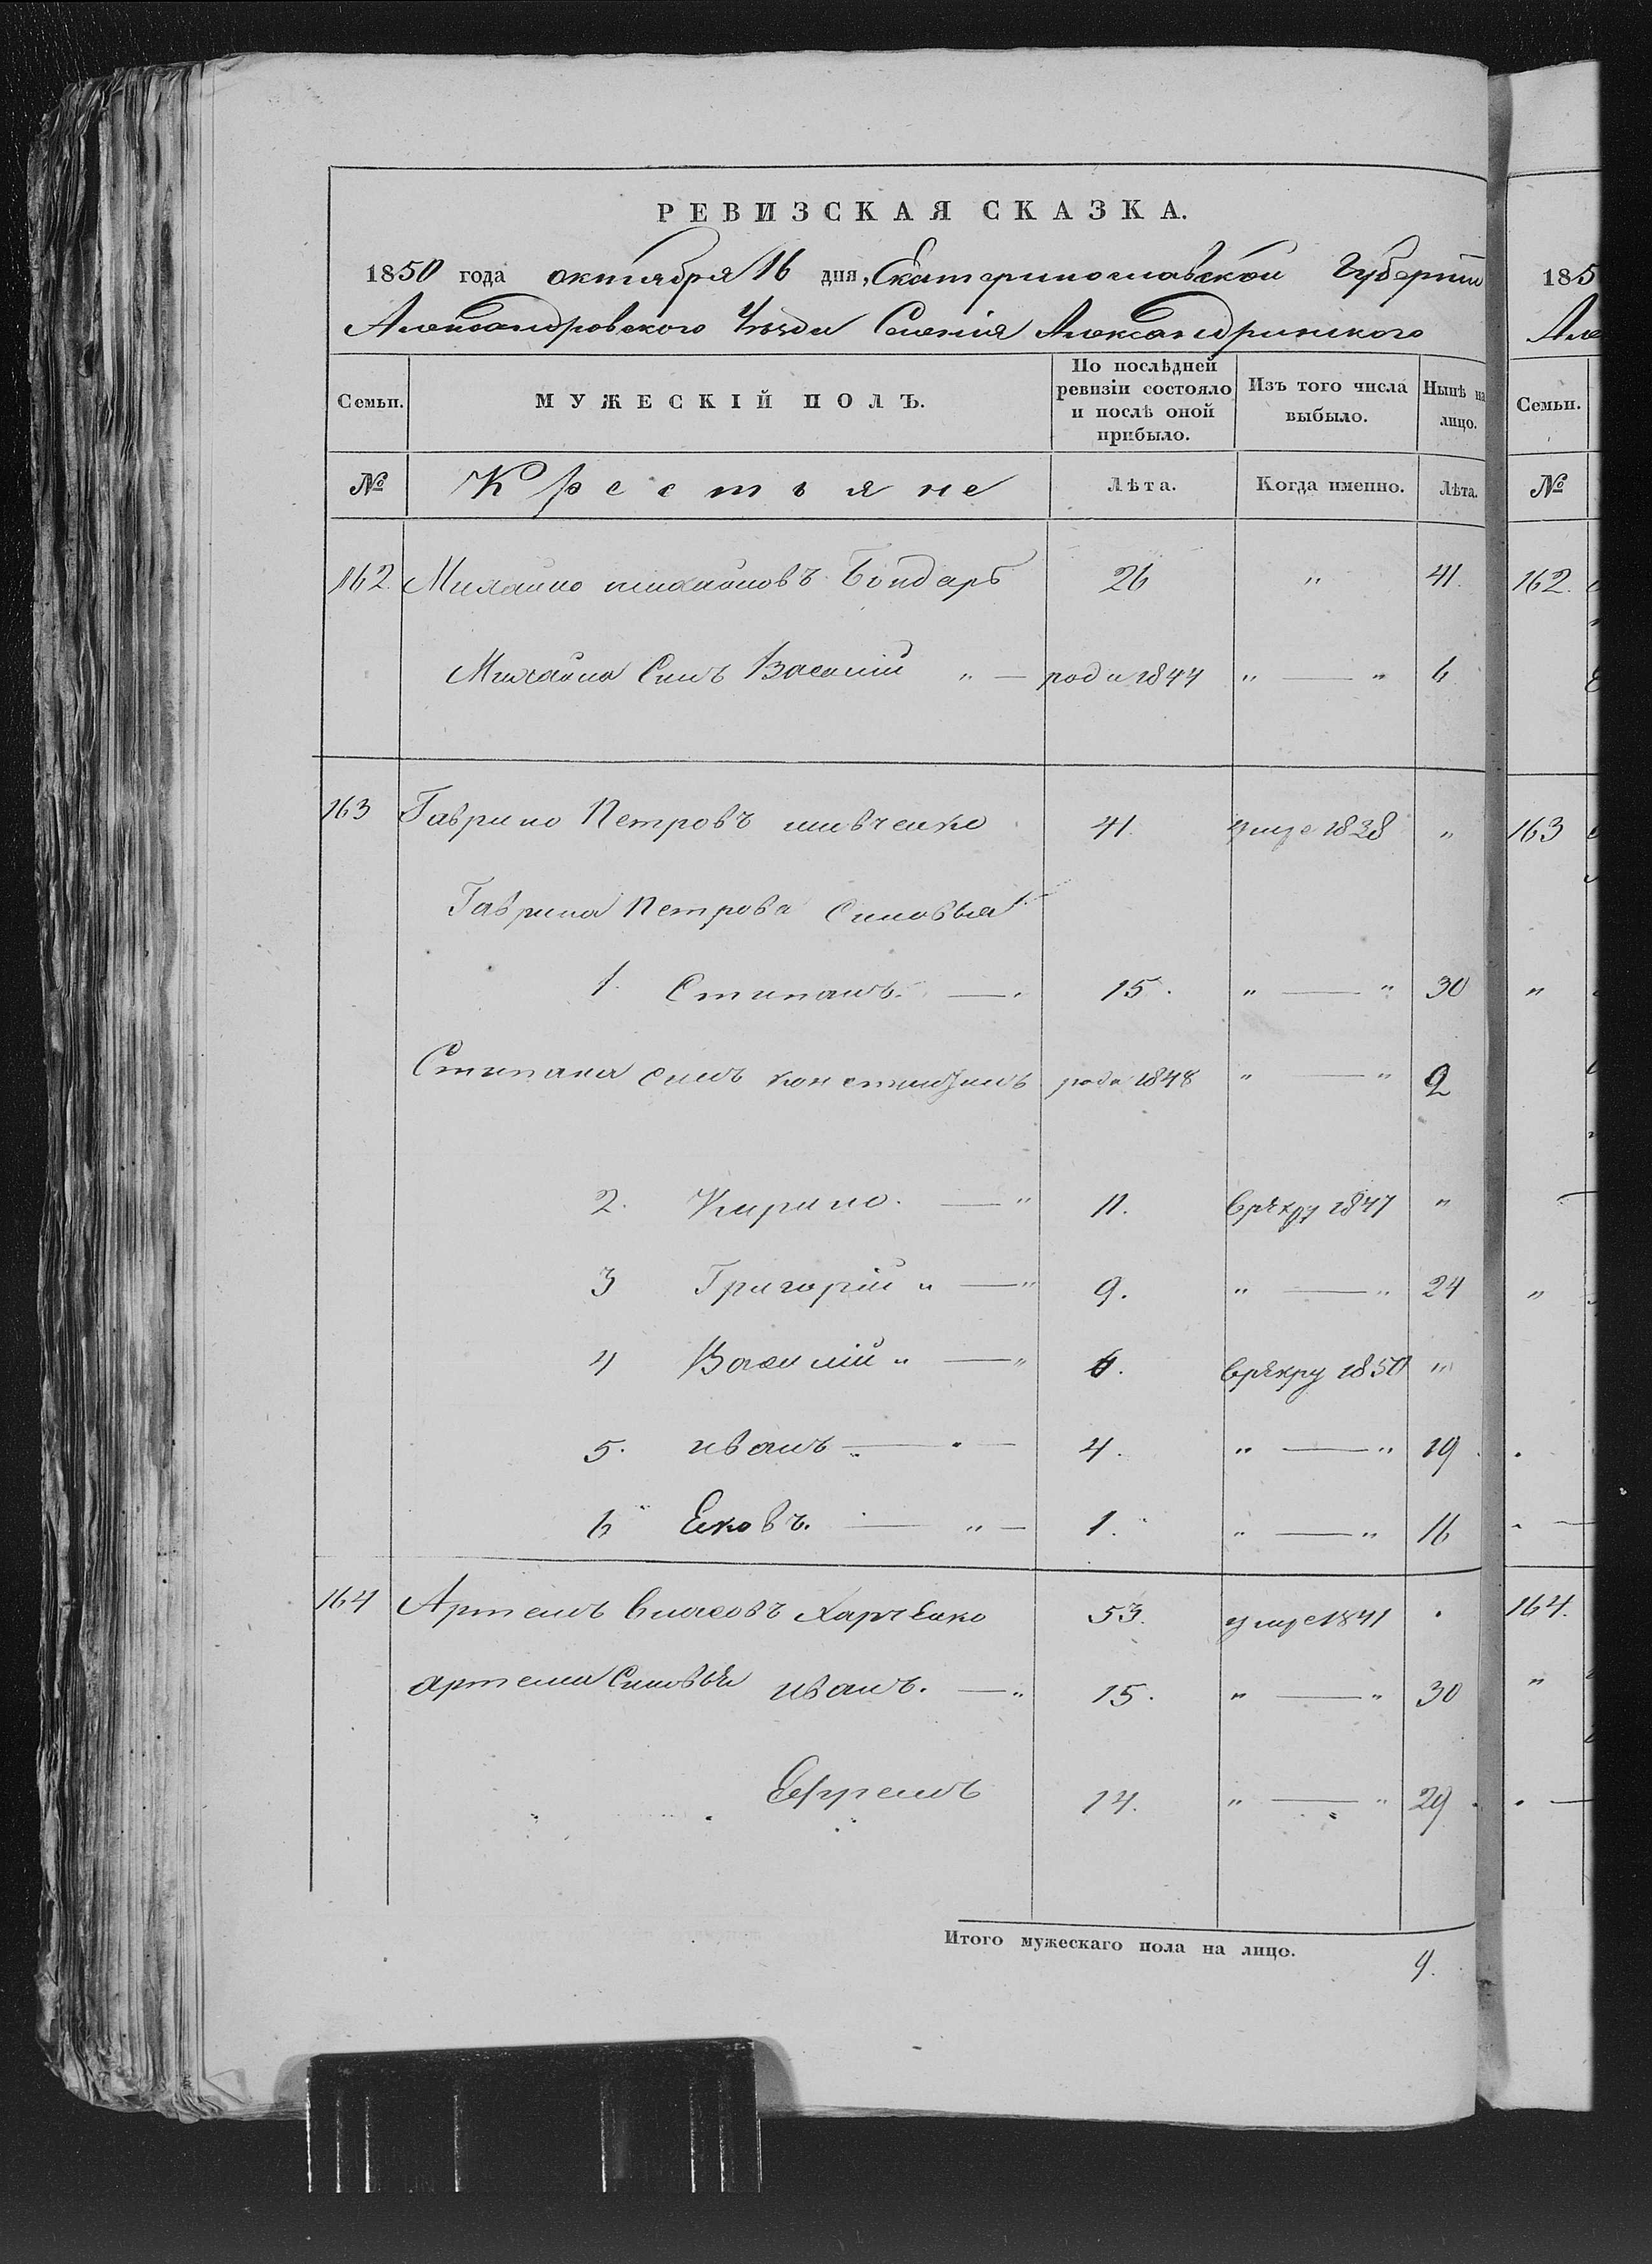 РЕВИЗСКАЯ СКАЗКА.
1850 года октября 16 дня, Екатеринославской Губернии
Александровского Уѣзда Селенія Александринского
Семьи. МУЖЕСКІЙ ПОЛЪ. По послѣдней ревизіи состояло и послѣ оной прибыло. Изъ того числа выбыло. Нынѣ на лицо.
№ Крестьяне Лѣта. Когда именно. Лѣта.
162. Михайло михайловъ Бондарь 26 " 41.
Михайла Синъ Василій " — роди 1844 " — " 6
163 Гаврило Петровъ шивченко 41. умре 1838 "
Гаврила Петрова Синовья
1. Стипанъ. — . 15. " — " 30
Стипана синъ константинъ роди 1848 " — " 2
2. Кирило. — " 11. врекру 1847 "
3 Григорій " — " 9. " — " 24
4 Василій " — " 6. врекру 1850 "
5. иванъ — " — 4. " — " 19.
6 Ековъ. — " — 1. " — " 16
164 Артемъ власовъ Харченко 53. умре 1841 .
артема Синовья иванъ. — " 15. " — " 30
Ефремъ 14. " — " 29.
Итого мужескаго пола на лицо. 9.
185
Але
Семьи.
№
162.
163
"
"
164.
"